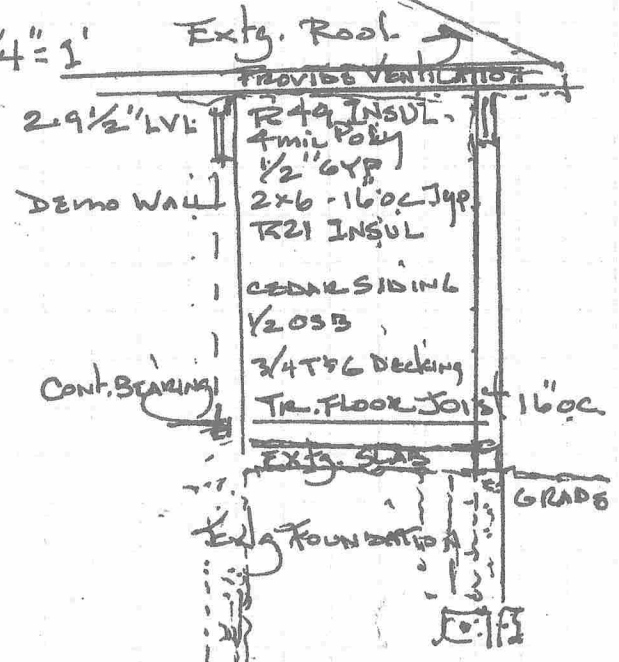 1/4"=1'
Extg. Roof
PROVIDE VENTILATION
2-9 1/2" LVL
R49 INSUL.
4mil Poly
1/2" GYP
DEMO WALL
2x6 - 16"OC Typ.
R21 INSUL
CEDAR SIDING
1/2 OSB
3/4 T&G Decking
CONT. BEARING
TR. FLOOR JOIST 16"OC
EXTG. SLAB
GRADE
Extg FOUNDATION